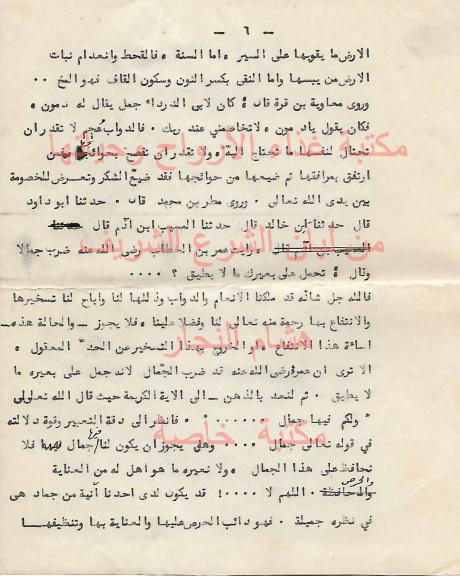 — ٦ —
الارض ما يقويها على السير ٠ واما السنة ٠ فالقحط وانعدام نبات
الارض من يبسها واما النقى بكسر النون وسكون القاف فهو المخ ٠٠
وروى معاوية بن قرة قال : كان لابى الدرداء جمل يقال له دمون ٠
فكان يقول يا دمون ٠ لا تخاصمنى عند ربك ٠ فالدواب عجم لا تقدر ان
تحتال لنفسها ما تحتاج اليه ٠ ولا تقدر ان تفصح بحوائجها فمن
ارتفق بمرافقها ثم ضيعها من حوائجها فقد ضيع الشكر وتعرض للخصومة
بين يدى الله تعالى ٠ وروى مطر بن محمد قال ٠ حدثنا ابو داود
قال حدثنا ابن خالد قال حدثنا المسيب ابن آدم قال
رايت عمر بن الخطاب رضى الله عنه ضرب جمالا
وقال : تحمل على بعيرك ما لا يطيق ؟ ٠٠٠٠
فالله جل شانه قد ملكنا الانعام والدواب وذللها لنا واباح لنا تسخيرها
والانتفاع بها رحمة منه تعالى لنا وفضلا علينا ٠ فلا يجوز ــ والحالة هذه ــ
اساءة هذا الانتفاع ٠ او الخروج بهذا التسخير عن الحد المعقول ٠
الا ترى ان عمر رضى الله عنه قد ضرب الجمال لانه حمل على بعيره ما
لا يطيق ٠ ثم لنعد بالذهن ــ الى الاية الكريمة حيث قال الله تعالى
" ولكم فيها جمال ٠٠٠٠٠٠ " ٠ فانظر الى دقة التعبير وقوة دلالته
فى قوله تعالى جمال ٠٠٠٠ وهل يجوز ان يكون لنا فيها جمال فلا
نحافظ على هذا الجمال ٠ ولا نعيره ما هو اهل له من العناية
والحرص ٠ اللهم لا ٠٠٠٠! قد يكون لدى احدنا آنية من جماد هى
فى نظره جميلة ٠ فهو دائب الحرص عليها والعناية بها وتنظيفها
مكتبة غذاء الأرواح وحديقتها
من لبان الشرع الشريف
هشام النجار
مكتبة خاصة